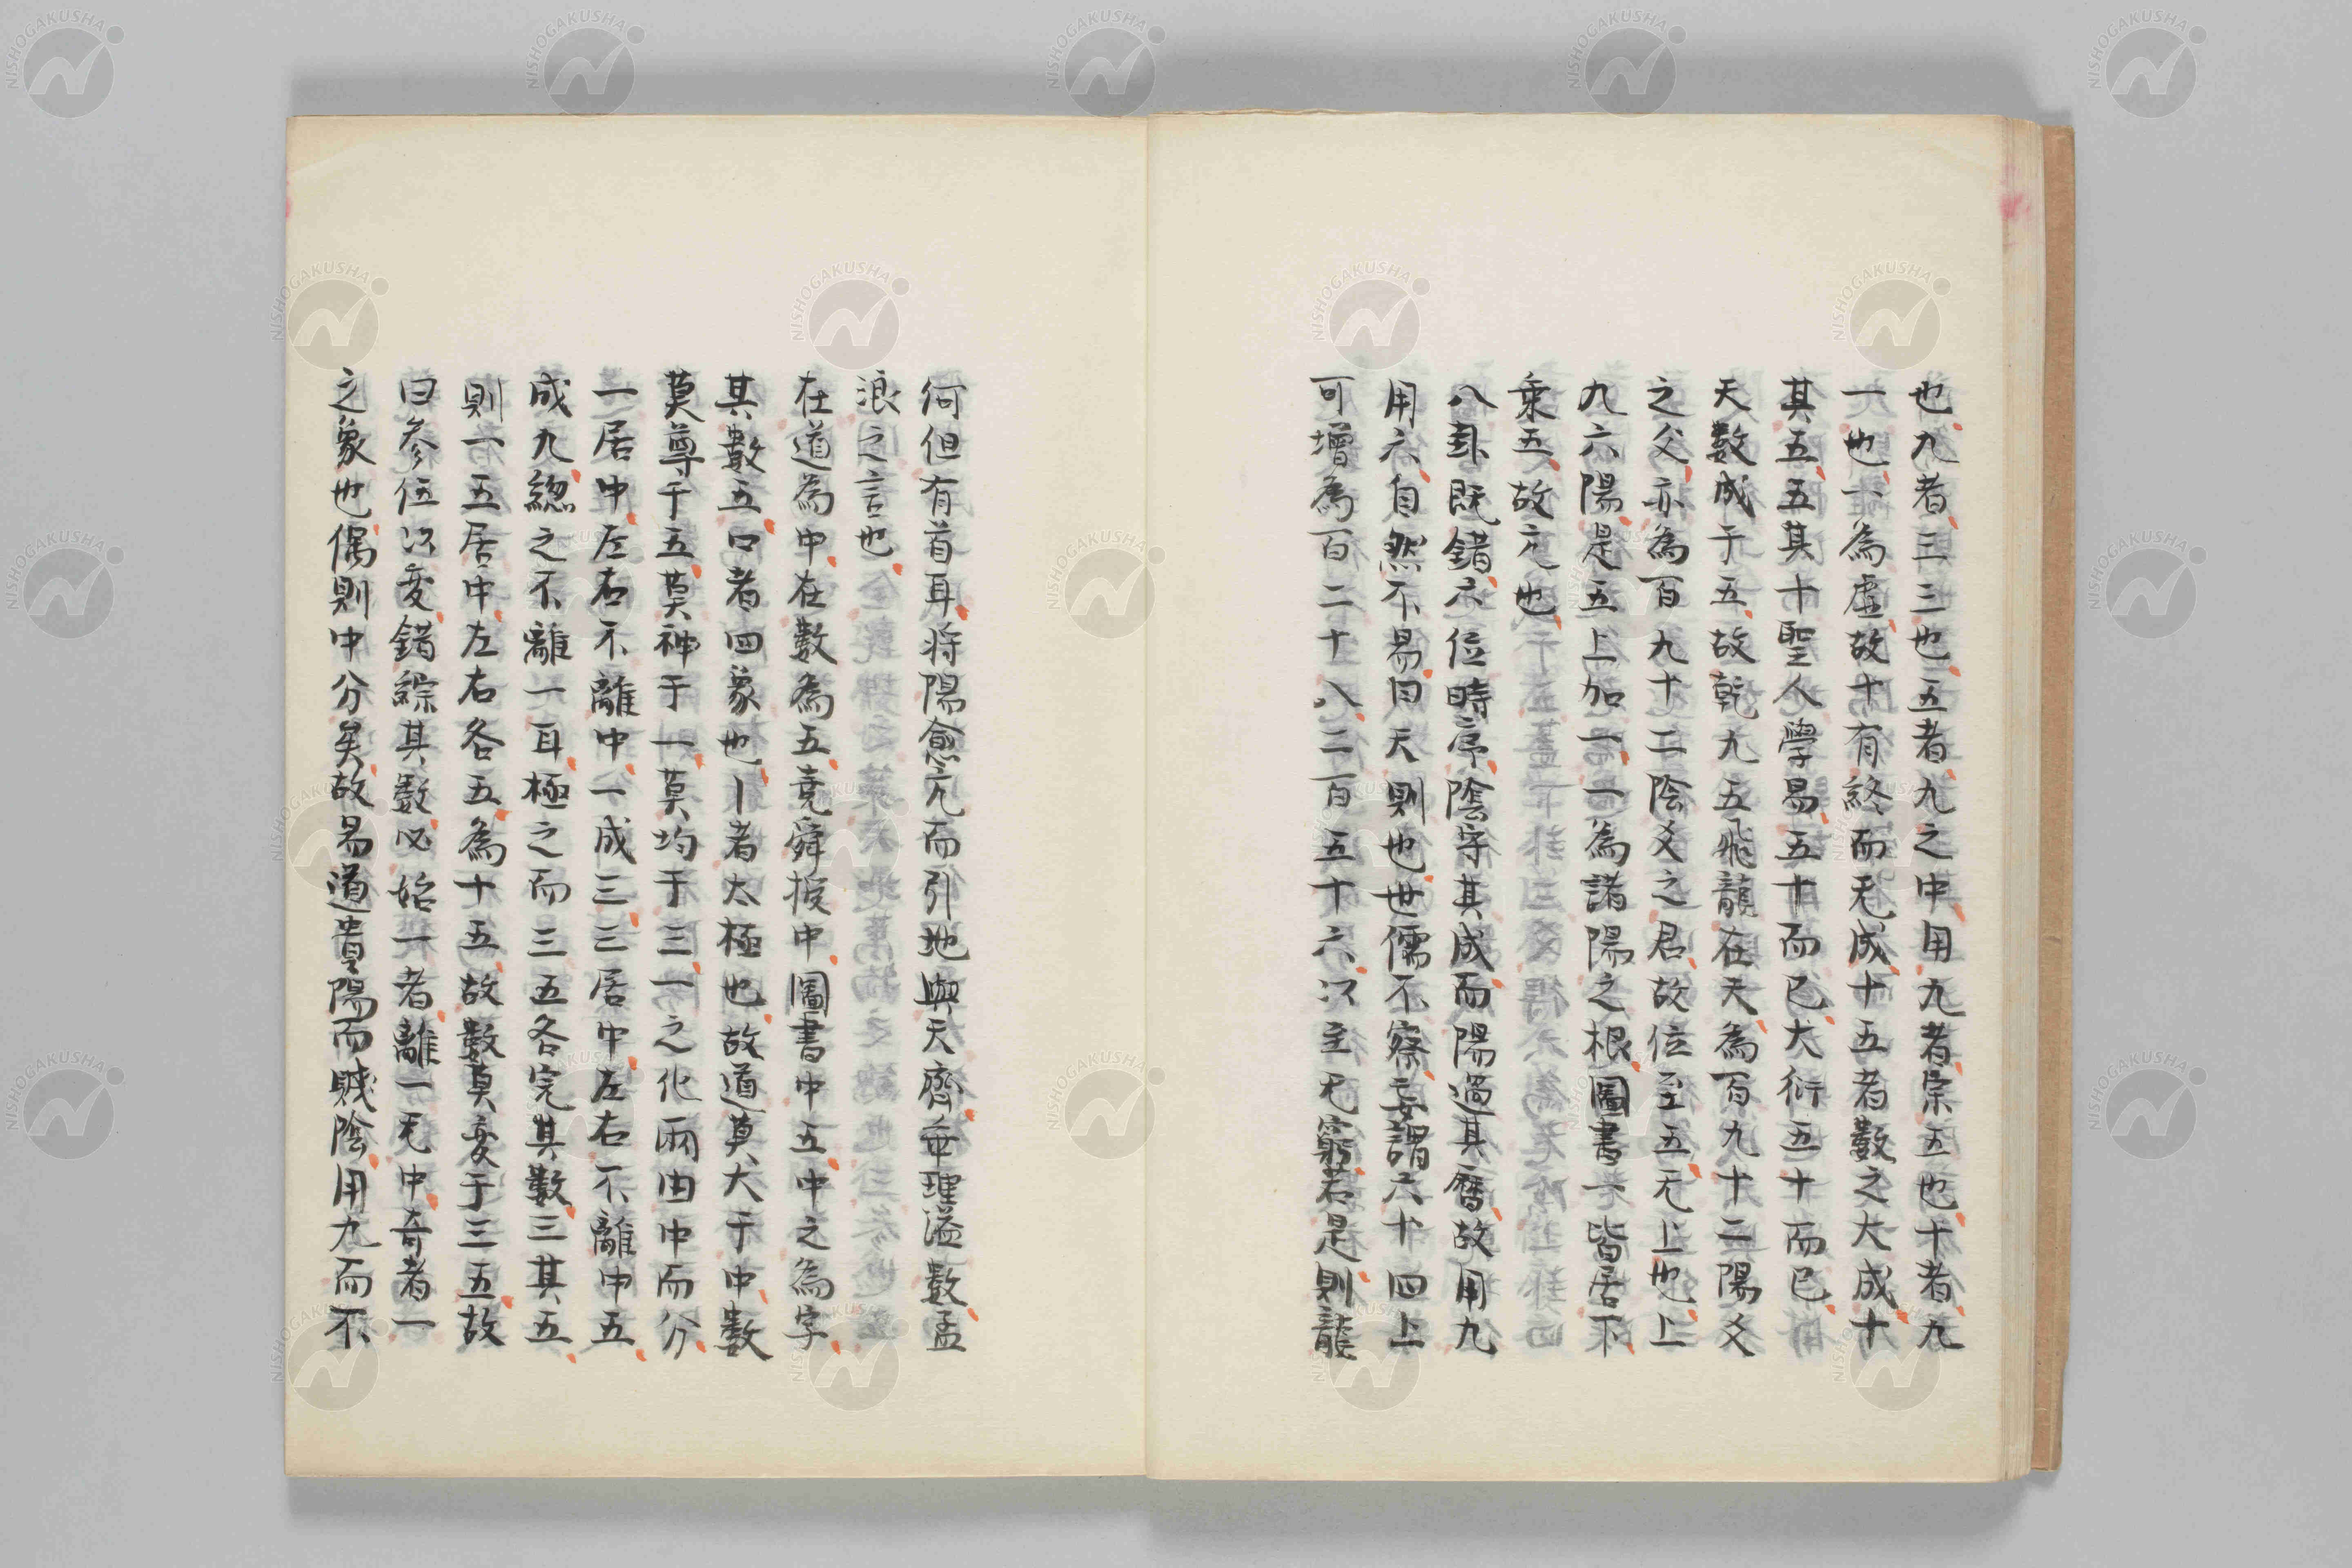 也九者三三也五者九之中用九者宗五也十者九
一也一為虛故十有終而无成十五者數之大成十
其五五其十聖人學易五十而已大衍五十而已
天數成于五故乾九五飛龍在天為百九十二陽爻
之父亦為百九十二陰爻之君故位至五无上也上
九六陽是五上加一一為諸陽之根圖書一皆居下
乘五故亢也
八卦既錯六位時序陰字其成而陽過其曆故用九
用六自然不易曰天則也世儒不察妄謂六十四上
可增為百二十八二百五十六以至无窮若是則龍
何但有首耳将陽愈亢而引地與天齊乖理溢數孟
浪之言也
在道為中在數為五堯舜授中圖書中五中之為字
其數五口者四象也丨者太極也故道莫大于中數
莫尊于五莫神于一莫均于三一之化兩由中而分
一居中左右不離中一成三三居中左右不離中五
成九總之不離一耳極之而三五各完其數三其五
則一五居中左右各五為十五故數莫変于三五故
曰参伍以変錯綜其數必始一者離一无中奇者一
之象也偶則中分矣故易道貴陽而賤陰用九而不
NISHOGAKUSHA